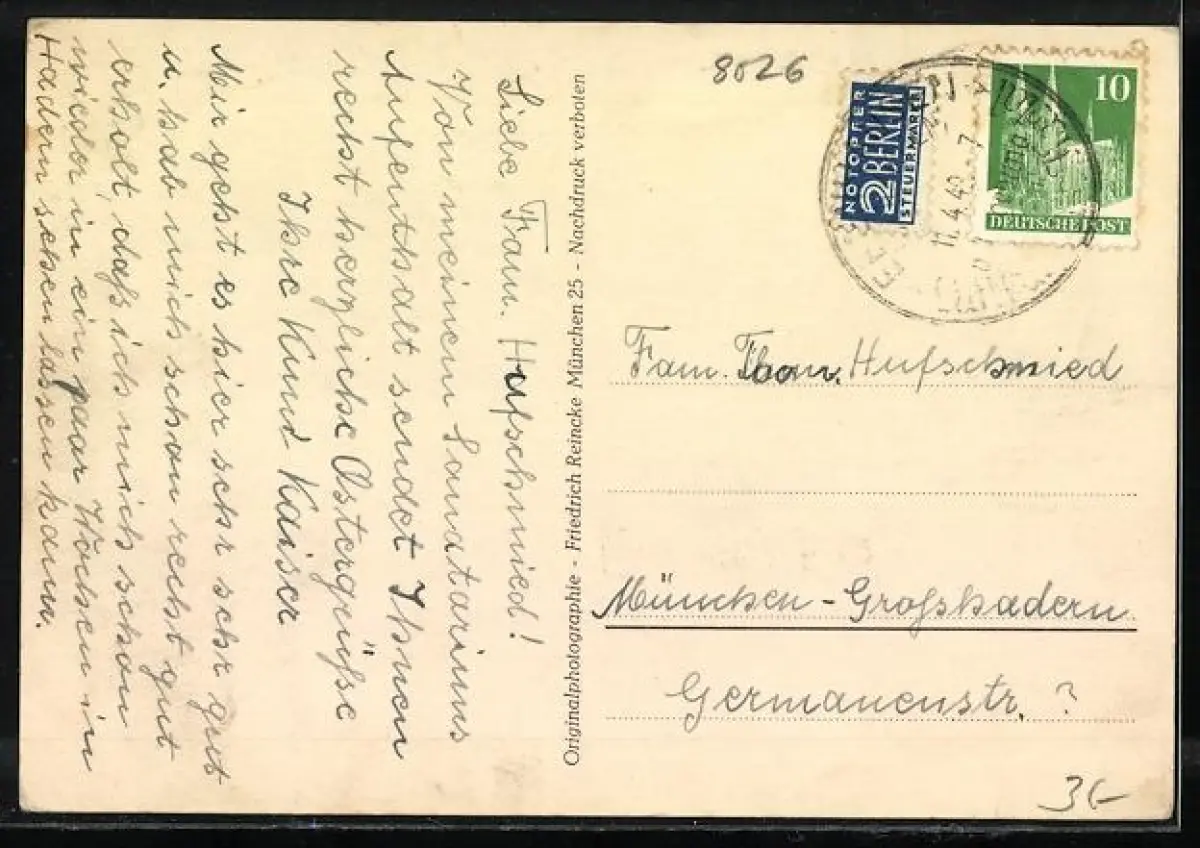 Liebe Fam. Hufschmied!
Von meinem Sanatariums
Aufenthalt sendet Ihnen
recht herzliche Ostergrüße
Ihre Kuni Kaiser
Mir geht es hier sehr sehr gut
u. hab mich schon recht gut
erholt, daß ich mich schon
wieder in ein paar Wochen in
Hadern sehen lassen kann.
Originalphotographie - Friedrich Reincke München 25 - Nachdruck verboten
8026
NOTOPFER
2 BERLIN
STEUERMARKE
10
DEUTSCHE POST
11.4.49.-7
Fam. Thom. Hufschmied
München-Großhadern
Germanenstr. ?
3G-